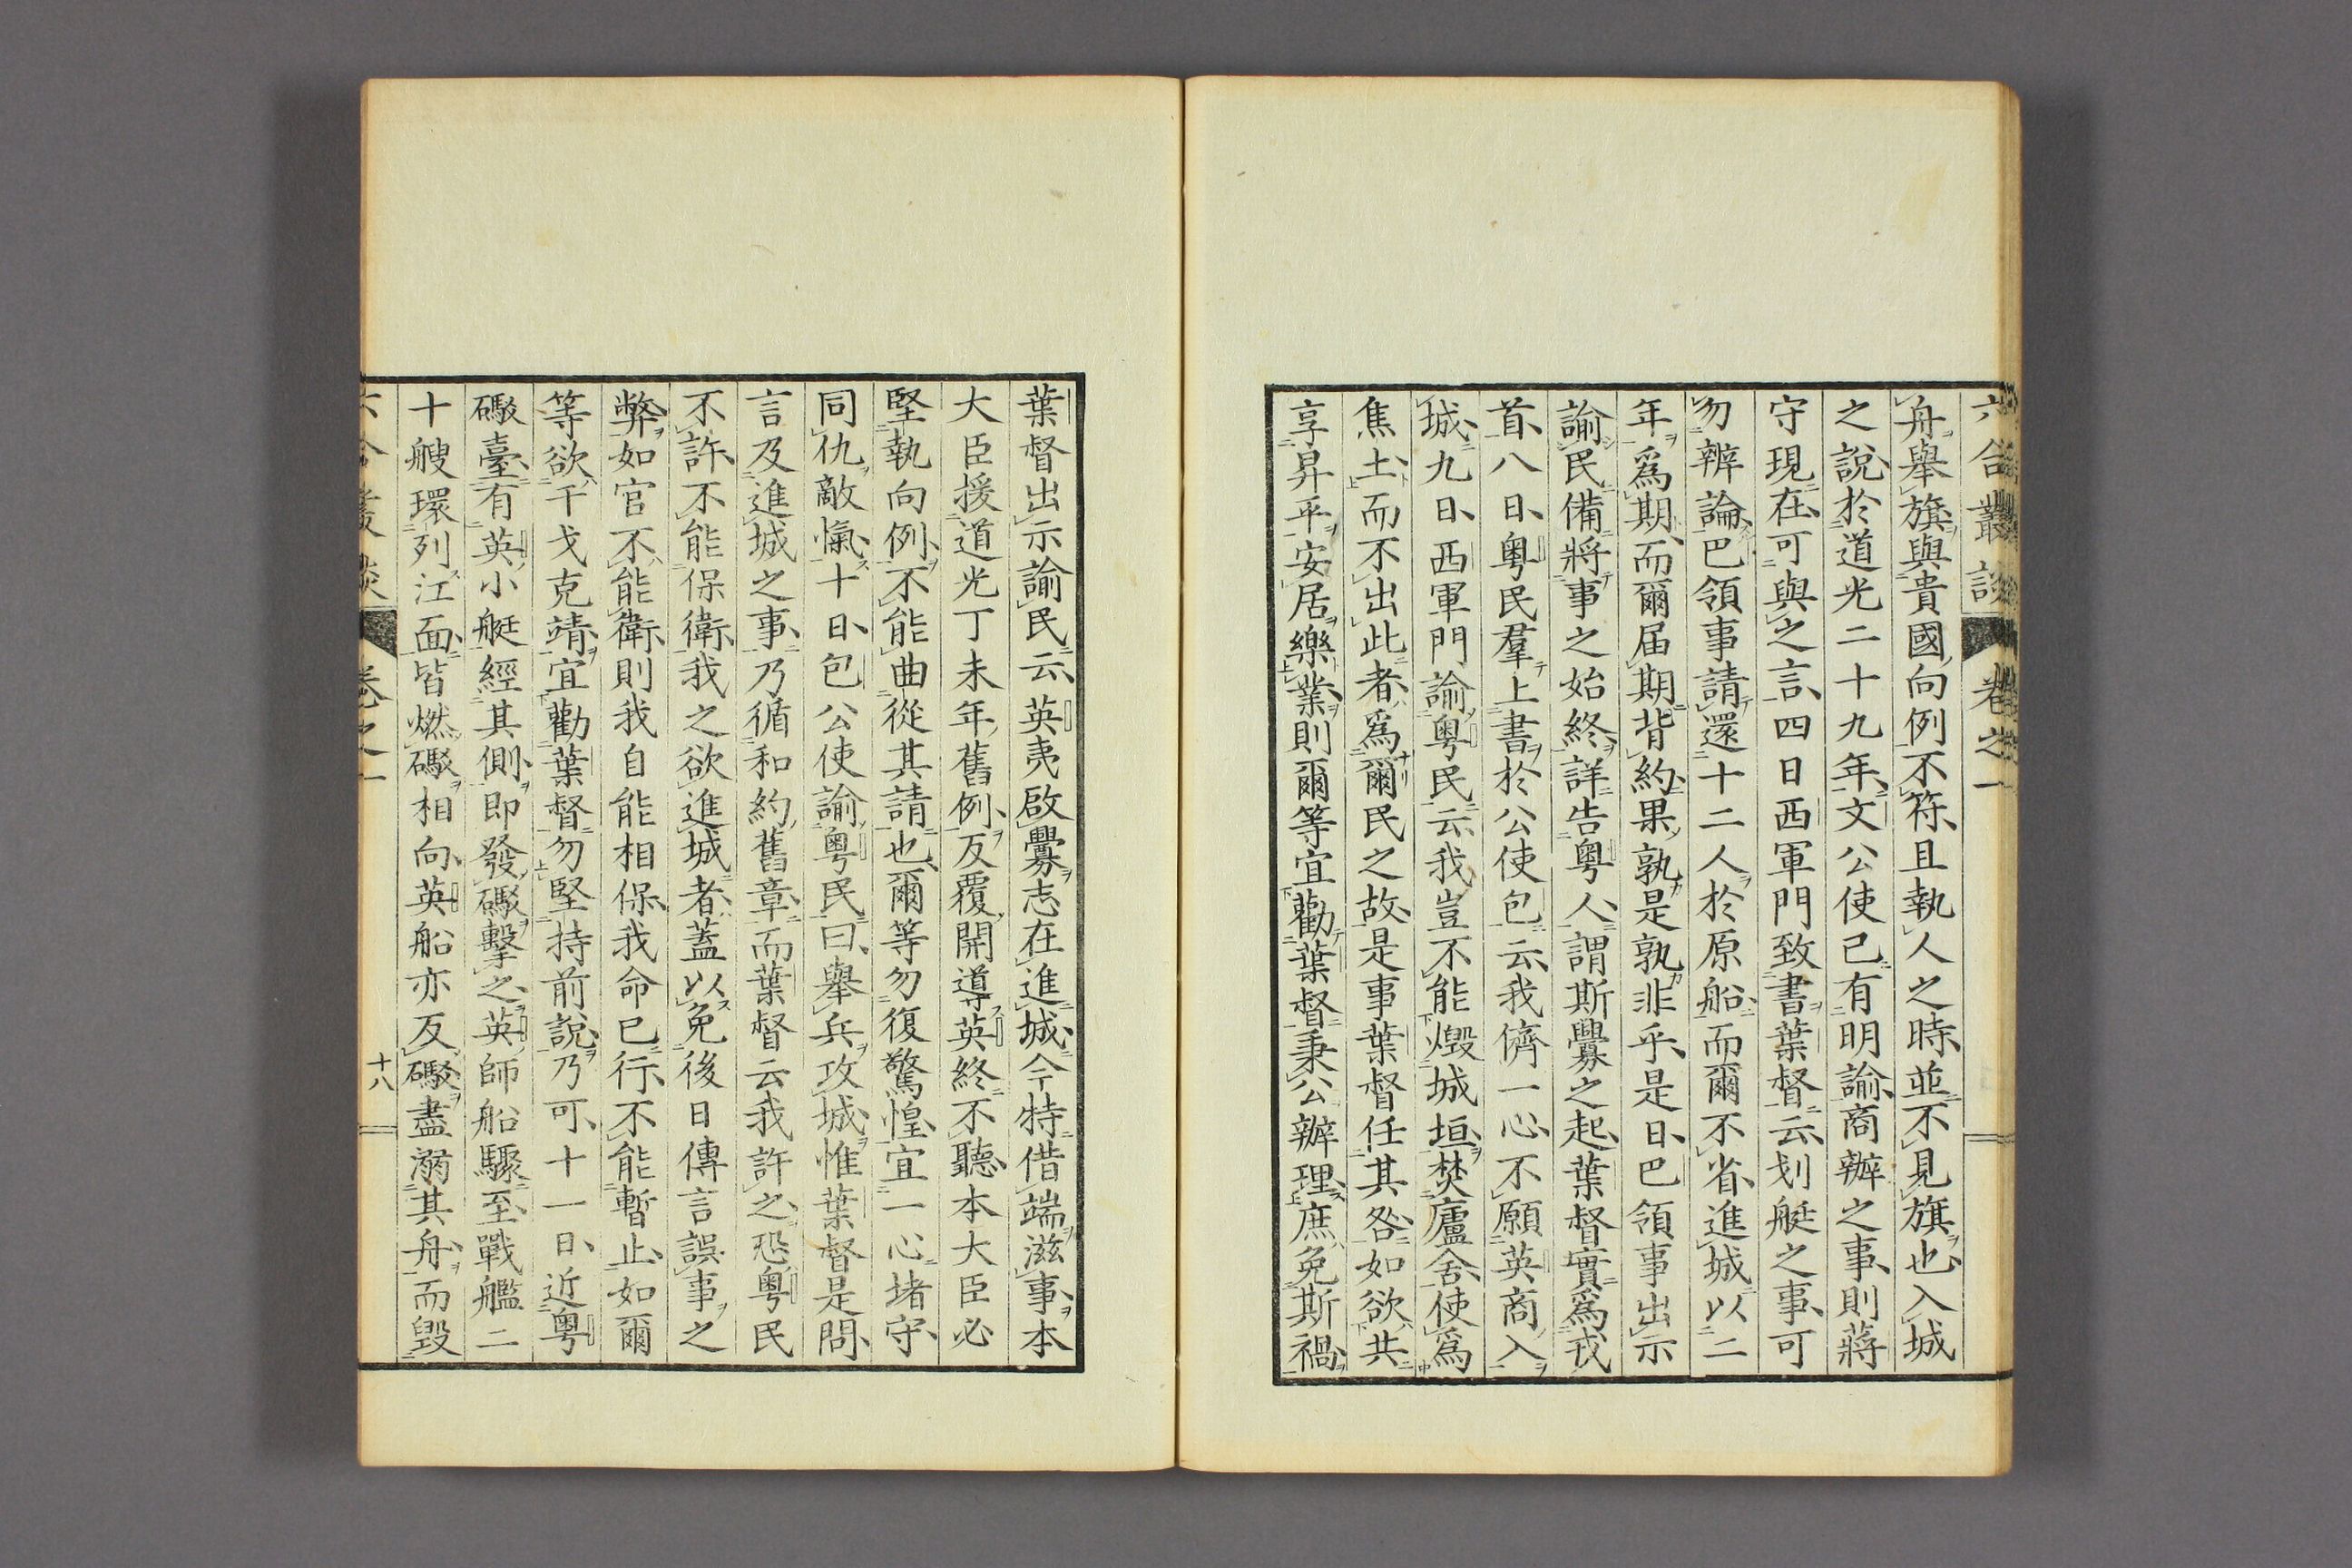 六合叢談 卷之一
舟舉旗與貴國向例不符且執人之時並不見旗也入城
之說於道光二十九年文公使已有明諭商辦之事則蔣
守現在可與之言四日西軍門致書葉督云划艇之事可
勿辨論巴領事請還十二人於原船而爾不省進城以二
年爲期而爾届期背約果孰是孰非乎是日巴領事出示
諭民備將事之始終詳告粤人謂斯釁之起葉督實爲戎
首八日粤民羣上書於公使包云我儕一心不願英商入
城九日西軍門諭粤民云我豈不能燬城垣焚廬舍使爲
焦土而不出此者爲爾民之故是事葉督任其咎如欲共
享昇平安居樂業則爾等宜勸葉督秉公辦理庶免斯禍
葉督出示諭民云英夷啟釁志在進城今特借端滋事本
大臣援道光丁未年舊例反覆開導英終不聽本大臣必
堅執向例不能曲從其請也爾等勿復驚惶宜一心堵守
同仇敵愾十日包公使諭粤民曰舉兵攻城惟葉督是問
言及進城之事乃循和約舊章而葉督云我許之恐粤民
不許不能保衛我之欲進城者蓋以免後日傳言誤事之
弊如官不能衛則我自能相保我命已行不能暫止如爾
等欲干戈克靖宜勸葉督勿堅持前說乃可十一日近粤
礮臺有英小艇經其側即發礮擊之英師船驟至戰艦二
十艘環列江面皆燃礮相向英船亦反礮盡溺其舟而毀
六合叢談 卷之一 十八